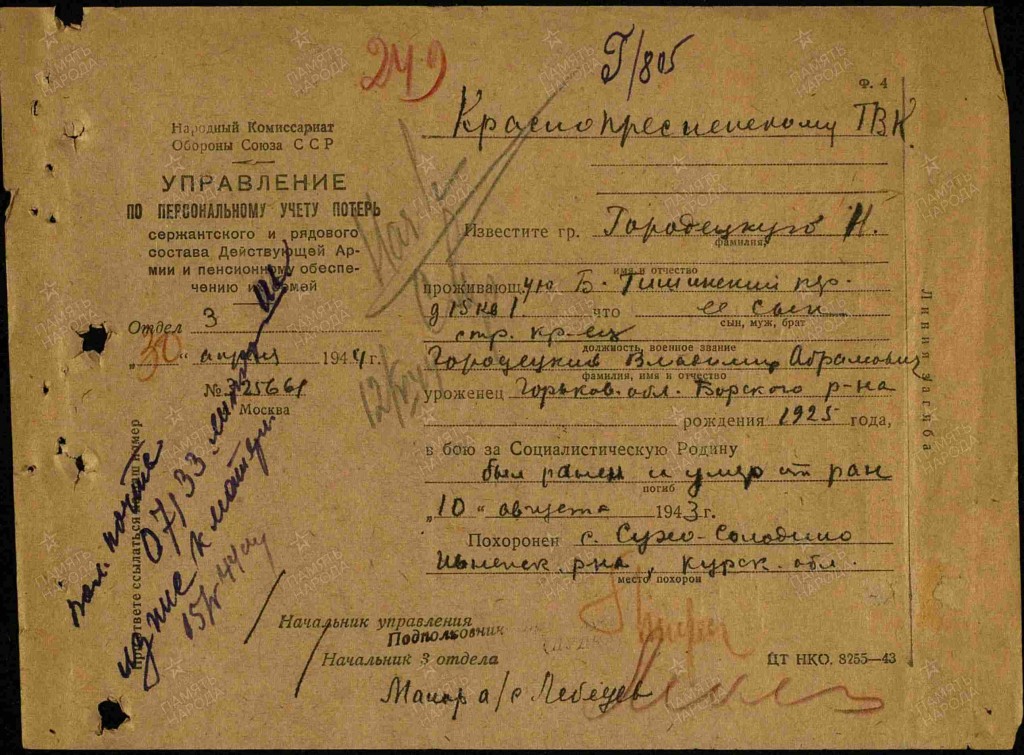 249
Г/805
Ф. 4
Народный Комиссариат
Обороны Союза ССР
УПРАВЛЕНИЕ
ПО ПЕРСОНАЛЬНОМУ УЧЕТУ ПОТЕРЬ
сержантского и рядового
состава Действующей Ар-
мии и пенсионному обеспе-
чению их семей
Отдел 3
„30“ апреля 1944 г.
№ 325661
Москва
При ответе ссылаться на наш номер
Краснопресненскому ГВК
Известите гр. Городецкую Н.
фамилия,
имя и отчество
проживающ.ую Б. Тишинский пер.
д 15 кв 1. что ее сын
сын, муж, брат
стр. кр-ец
должность, военное звание
Городецкий Владимир Абрамович
фамилия, имя и отчество
уроженец Горьков. обл. Борского р-на
рождения 1925 года,
в бою за Социалистическую Родину
был ранен и умер от ран
погиб
„10“ августа 1943 г.
Похоронен с. Сухо-Солодимо
р-на, Курск. обл.
место похорон
Начальник управления
Подполковник
Начальник 3 отдела
Майор а/с Лебедев
ЦТ НКО. 3255—43
Линия загиба
пол. почта
07133
к матери
ПАМЯТЬ НАРОДА